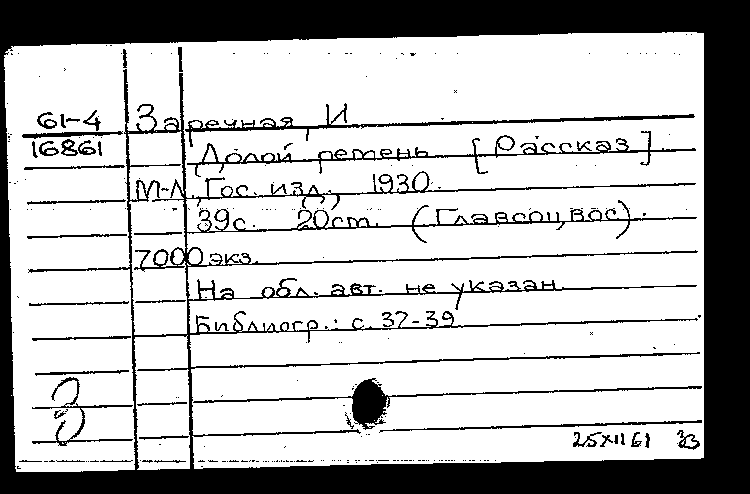 61-4 Заречная, И
16861 Долой ремень [Рассказ]
М-Л., Гос. изд., 1930.
39с. 20см. (Главсоцвос).
7000 экз.
На обл. авт. не указан
Библиогр.: с. 37-39
З
25 XII 61 33